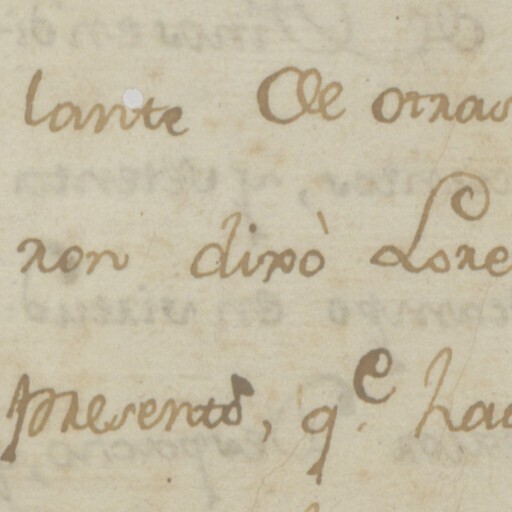 lante de otras
ron dixò Lore
presentò, q.e hac